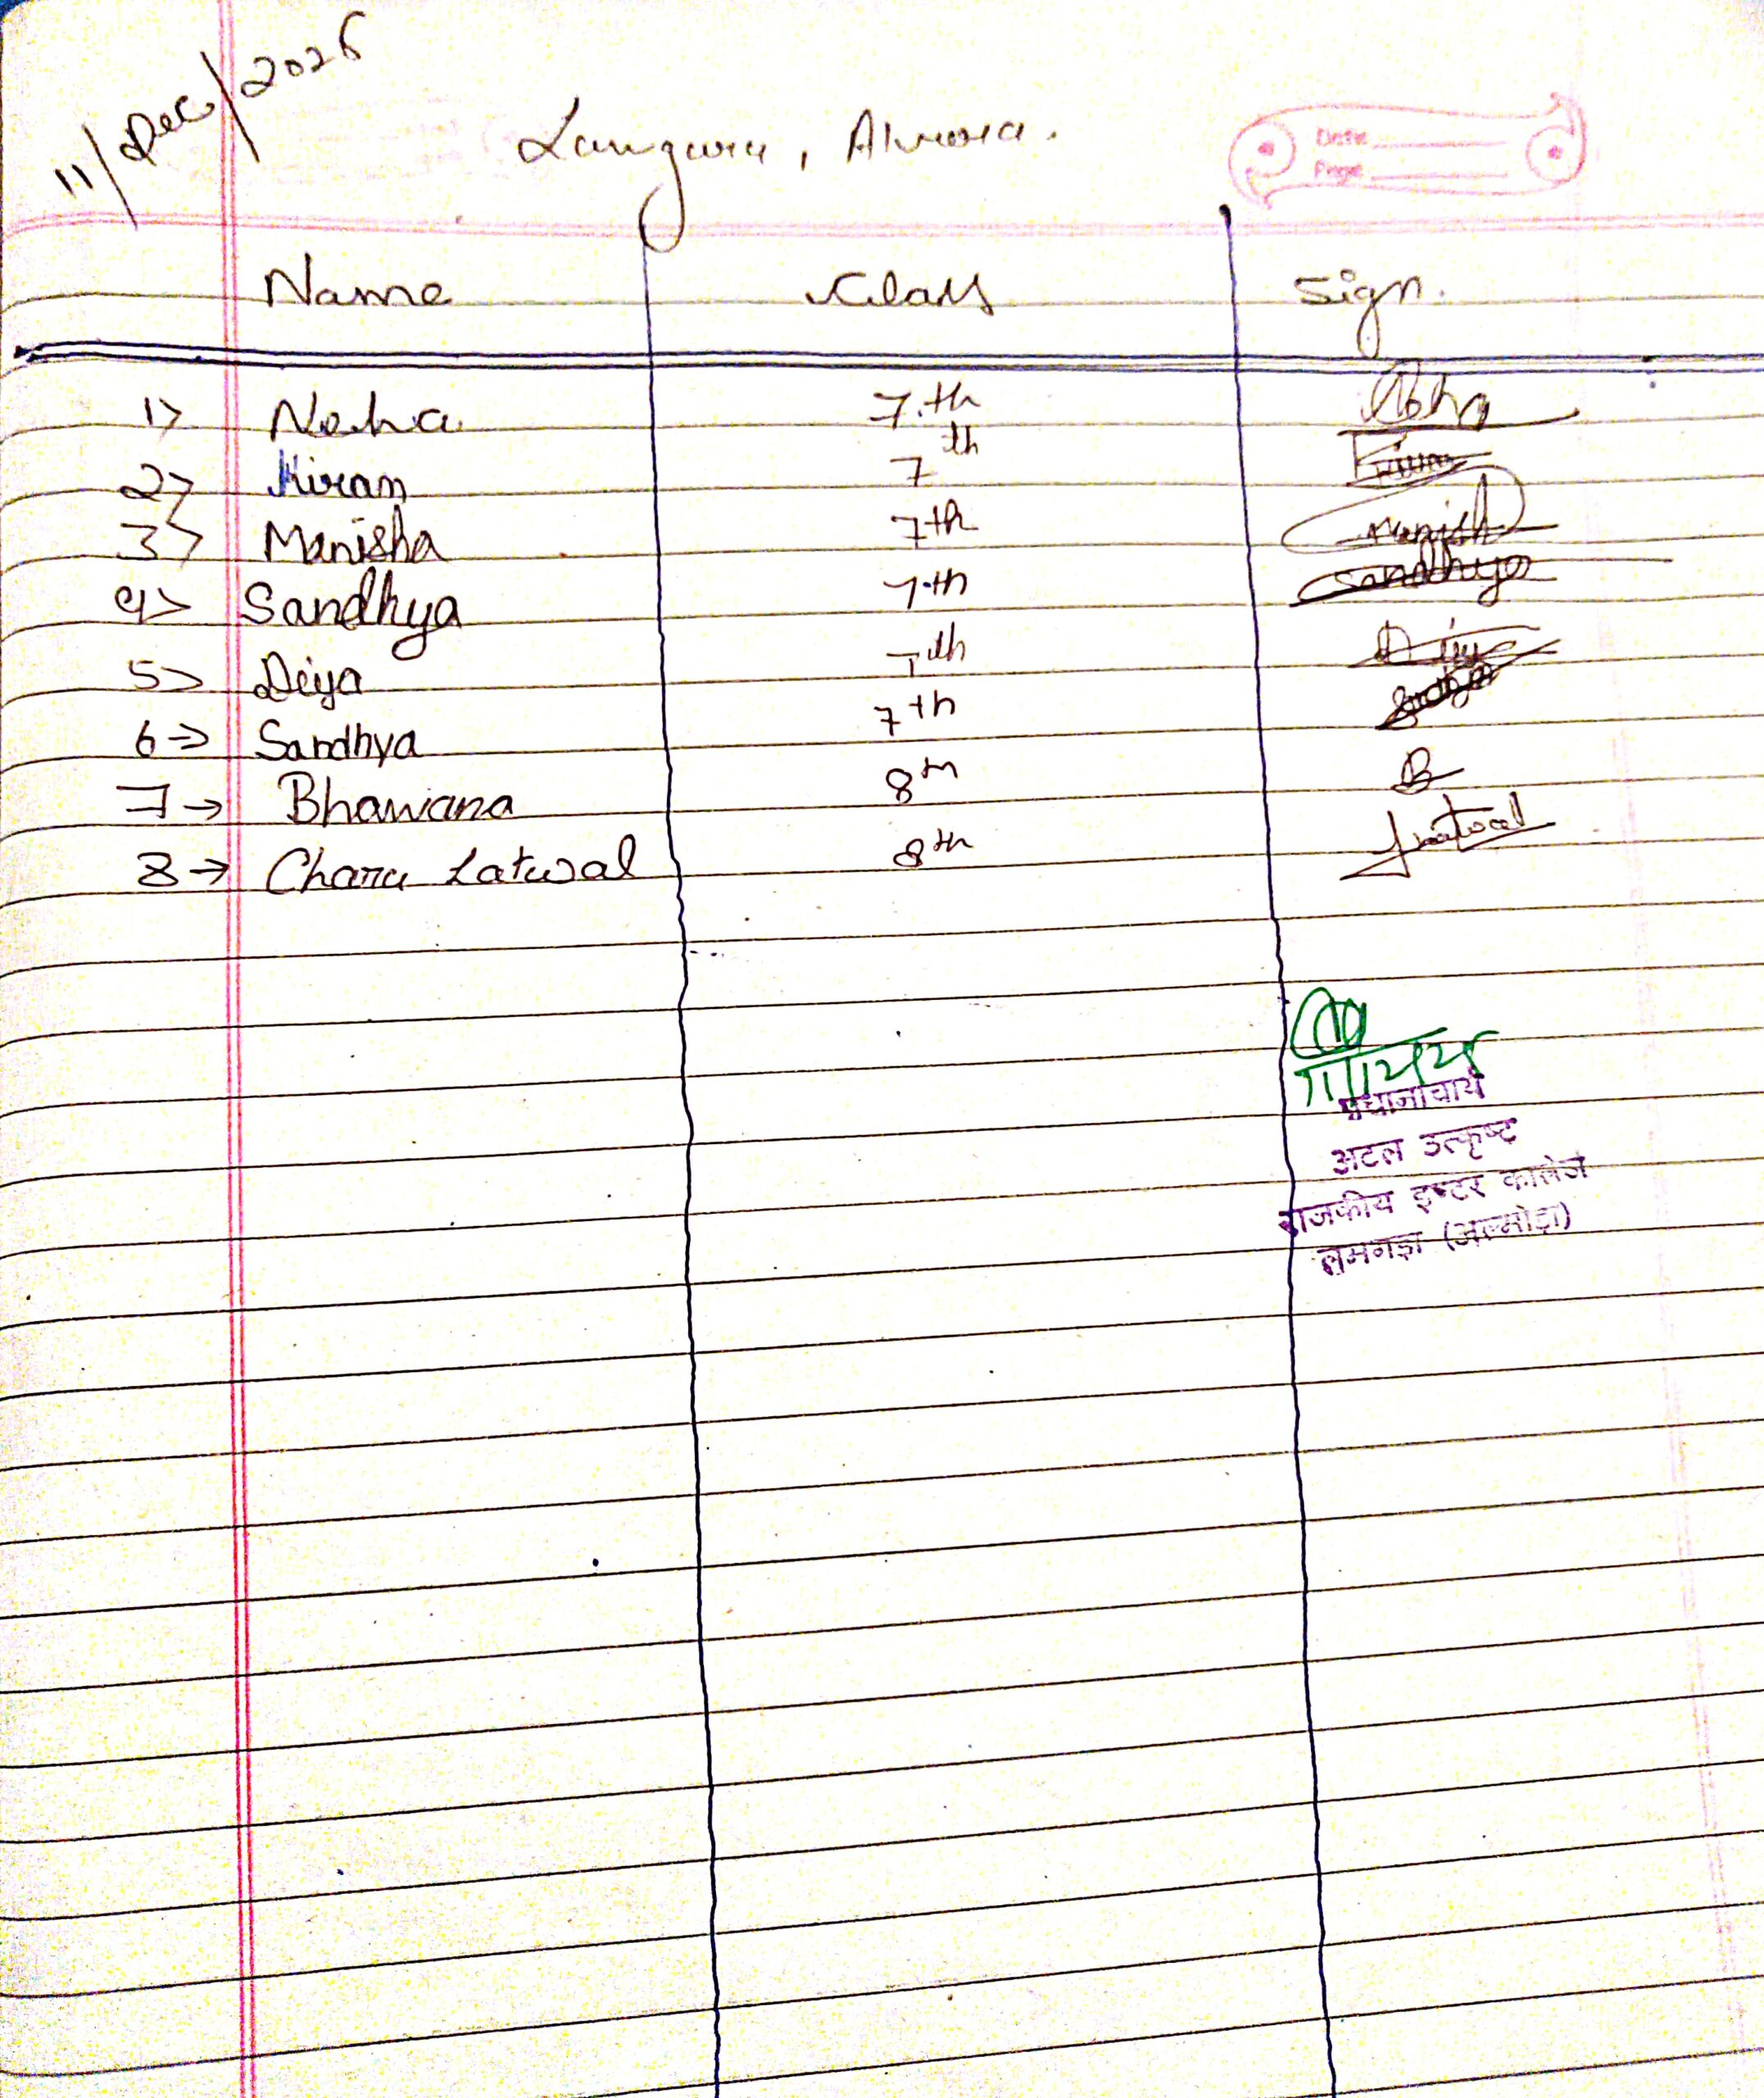 11/Dec/2025
Lamgara, Almora.
Date
Page
Name Class Sign.
1> Neha 7.th Neha
2> Kiran 7th Kiran
3> Manisha 7th Manish
4> Sandhya 7.th Sandhya
5> Deiya 7th Diya
6-> Sandhya 7th
7-> Bhawana 8th B
8-> Charu Latwal 8th
11/12/25
प्रधानाचार्य
अटल उत्कृष्ट
राजकीय इण्टर कालेज
लमगड़ा (अल्मोड़ा)